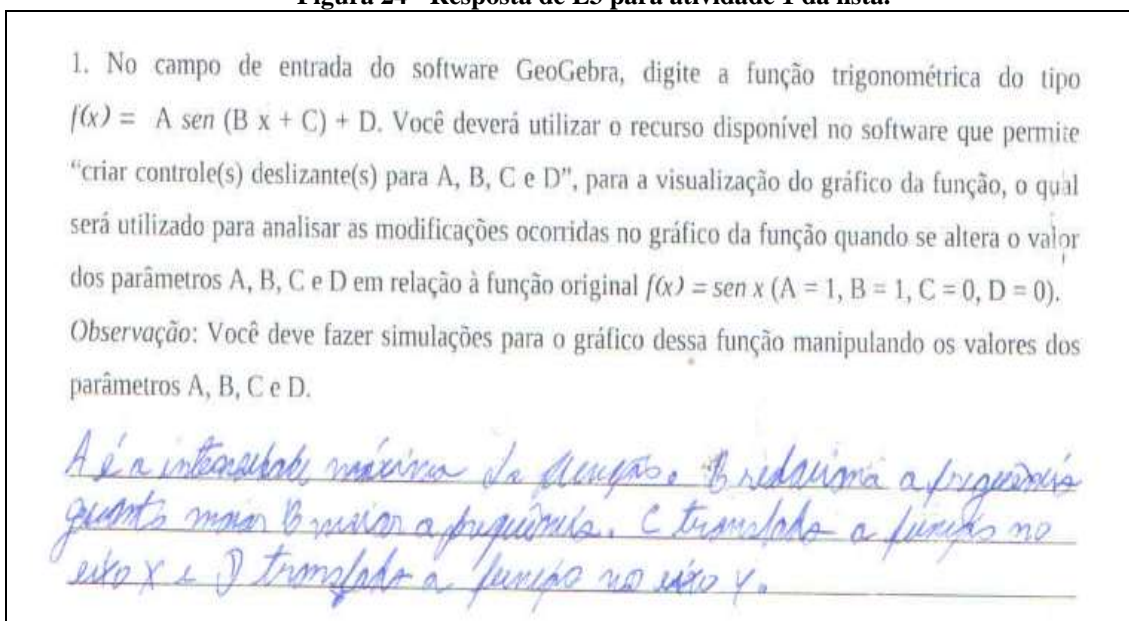 Figura 24 - Resposta de E3 para atividade 1 da lista.
1. No campo de entrada do software GeoGebra, digite a função trigonométrica do tipo
f(x) = A sen (B x + C) + D. Você deverá utilizar o recurso disponível no software que permite
“criar controle(s) deslizante(s) para A, B, C e D”, para a visualização do gráfico da função, o qual
será utilizado para analisar as modificações ocorridas no gráfico da função quando se altera o valor
dos parâmetros A, B, C e D em relação à função original f(x) = sen x (A = 1, B = 1, C = 0, D = 0).
Observação: Você deve fazer simulações para o gráfico dessa função manipulando os valores dos
parâmetros A, B, C e D.
A é a intensidade máxima da função. B relaciona a frequência
quanto maior B maior a frequência. C translada a função no
eixo X e D translada a função no eixo Y.